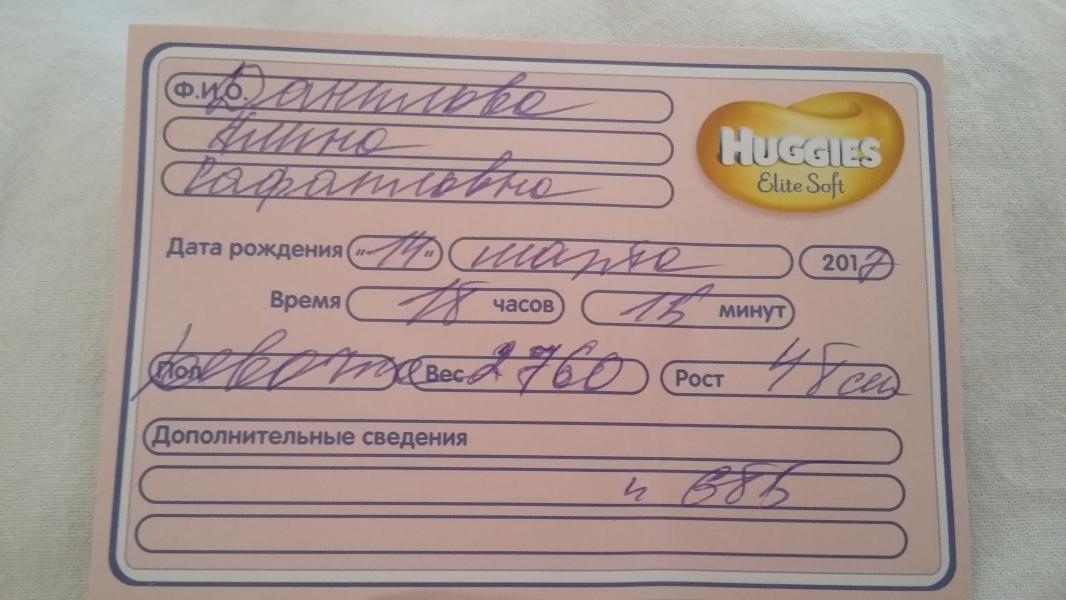 Ф.И.О. Данилова
Алина
Рафаиловна
HUGGIES
Elite Soft
Дата рождения "14" марта 2017
Время 18 часов 15 минут
Пол девочка Вес 2760 Рост 48 см
Дополнительные сведения